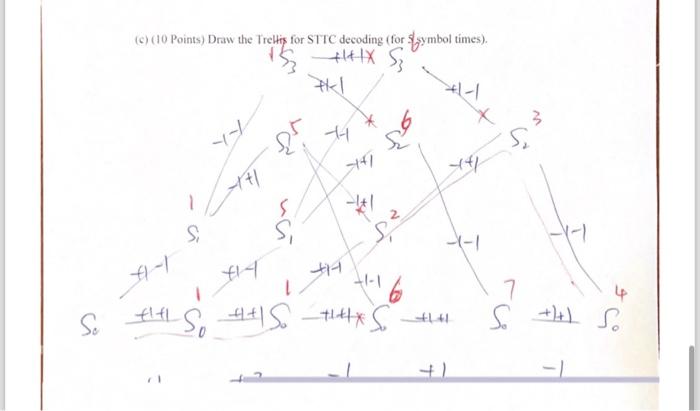 (c) (10 Points) Draw the Trellis for STTC decoding (for 5 symbol times).
S₃ +1+1 S₃
+1-1
+1-1
-1-1 S₂ 5 -1-1 S₂ 6 S₂ 3
-1+1 -1+1 -1+1
1 S₁ 5 S₁ -1+1 S₁ 2 -1-1 -1-1
+1-1 +1-1 +1-1 -1-1
S₀ +1+1 S₀ 1 +1+1 S₀ 1 +1+1 S₀ 6 +1+1 S₀ 7 +1+1 S₀ 4
-1 +1 -1